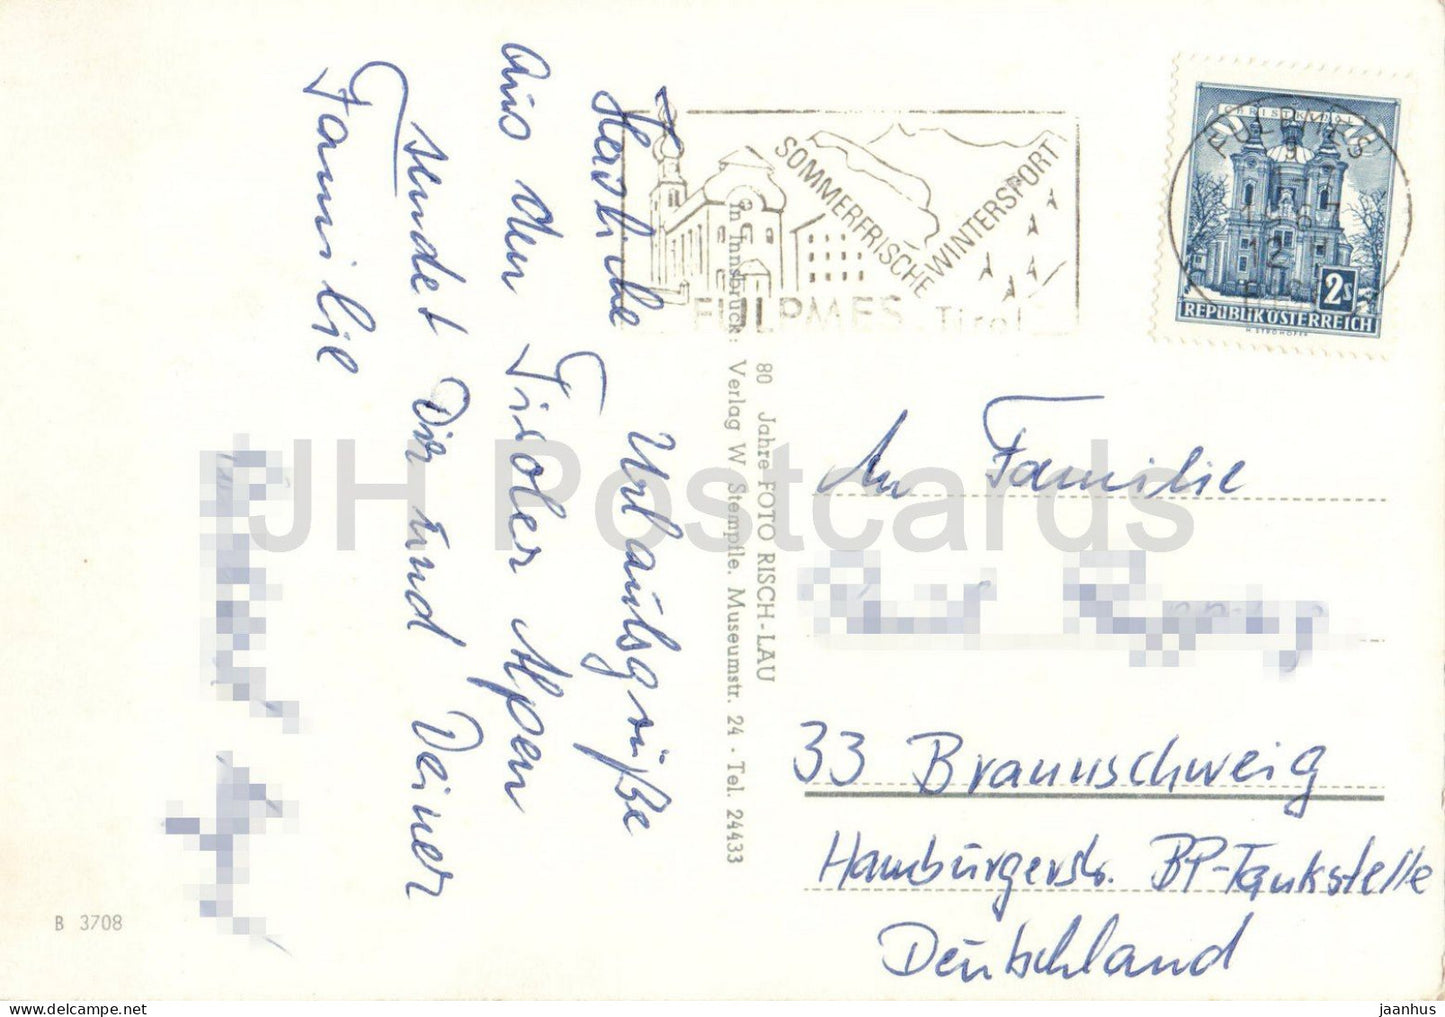 Herzliche Urlaubsgrüße
aus den Tiroler Alpen
sendet Dir und Deiner
Familie
SOMMERFRISCHE
WINTERSPORT
FULPMES Tirol
FULPMES
CHRISTKINDL
2s
REPUBLIK ÖSTERREICH
80 Jahre FOTO RISCH-LAU
in Innsbruck: Verlag W Stempfle, Museumstr. 24 · Tel. 24433
An Familie
33 Braunschweig
Hamburgerstr. BP-Tankstelle
Deutschland
B 3708
JH Postcards
jaanhus